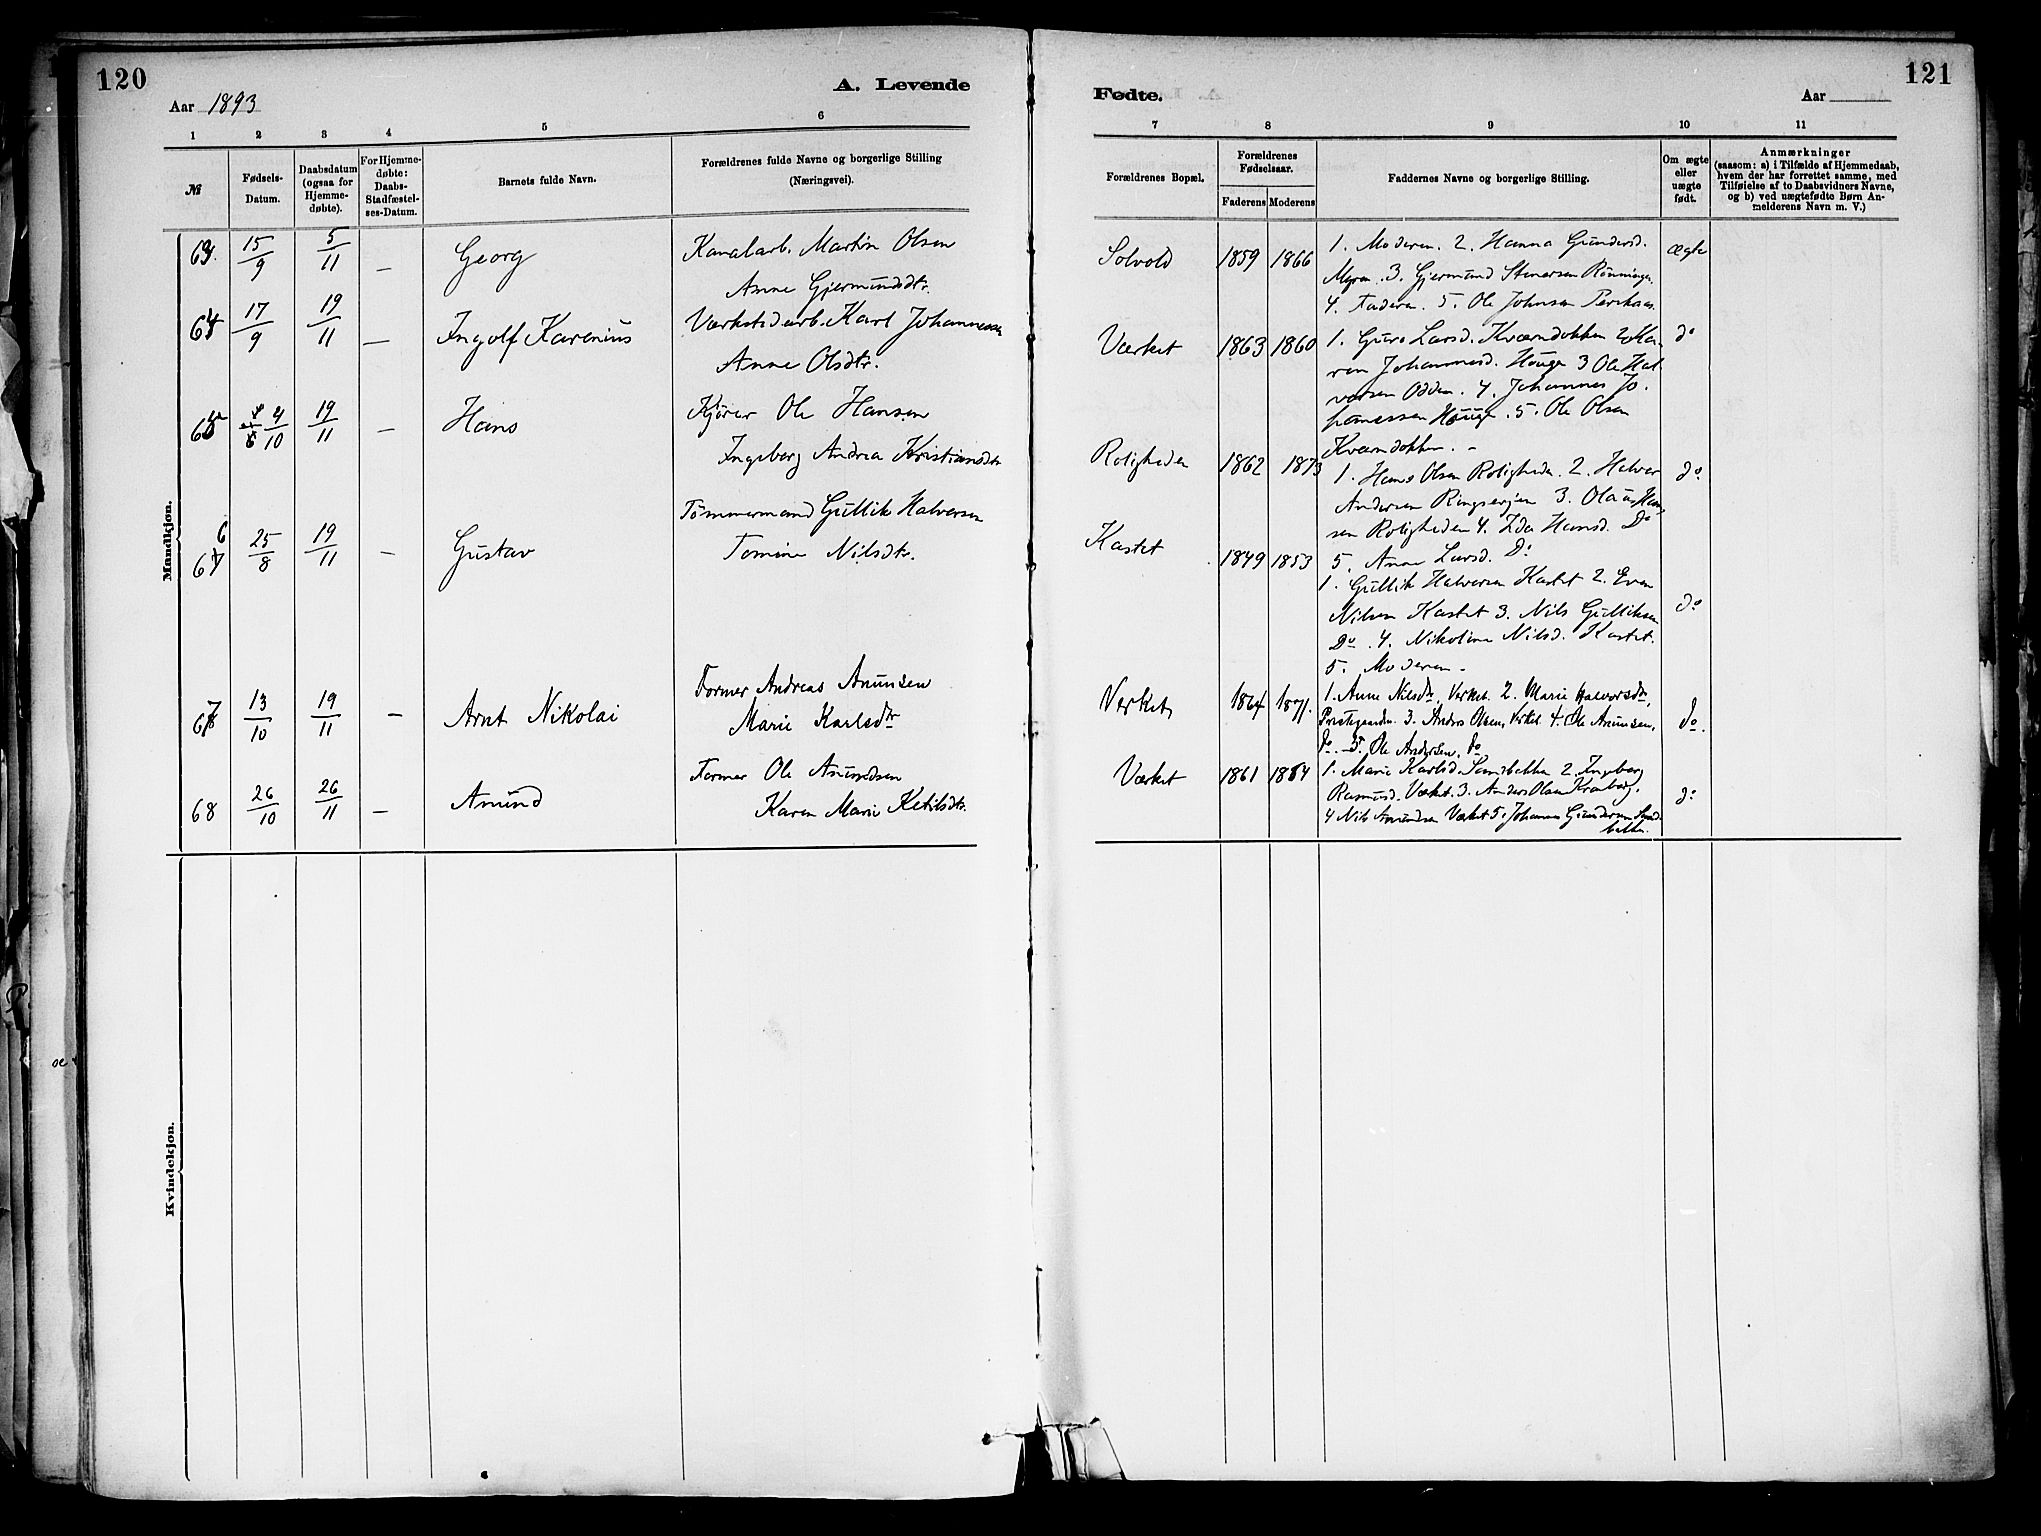 120
A. Levende
Aar 1893
1 2 3 4 5 6
№
Fødsels-
Datum.
Daabsdatum
(ogsaa for
Hjemme-
døbte).
For Hjemme-
døbte:
Daabs-
Stadfæstel-
ses-Datum.
Barnets fulde Navn.
Forældrenes fulde Navne og borgerlige Stilling
(Næringsvei).
Mandkjøn.
63. 15/9 5/11 – Georg Kanalarb. Martin Olsen
Anne Gjermundsdtr.
64 17/9 19/11 – Ingolf Karenius Værkstedarb. Karl Johannessen
Anne Olsdtr.
65 4/10 19/11 – Hans Kjører Ole Hansen
Ingeborg Andrea Kristiansdtr
66 25/8 19/11 – Gustav Tømmermand Gullik Halvorsen
Tomine Nilsdtr.
67 13/10 19/11 – Arnt Nikolai Former Andreas Anunsen
Marie Karlsdtr
68 26/10 26/11 – Anund Former Ole Anundsen
Karen Marie Ketilsdtr.
Kvindekjøn.
121
Fødte.
Aar
7 8 9 10 11
Forældrenes Bopæl.
Forældrenes
Fødselsaar.
Faderens Moderens
Faddernes Navne og borgerlige Stilling.
Om ægte
eller
uægte
født.
Anmærkninger
(saasom: a) i Tilfælde af Hjemmedaab,
hvem der har forrettet samme, med
Tilføielse af to Daabsvidners Navne,
og b) ved uægtefødte Børn An-
melderens Navn m. V.)
Solvold 1859 1866 1. Moderen. 2. Hanna Gundersd. ægte
Myren. 3. Gjermund Stenersen Rönningen
4. Faderen. 5. Ole Johnsen
Værket 1863 1860 1. Guro Larsd. Kværndokken 2 Ka- do
ren Johannesd. Houge 3 Ole Hal-
vorsen Odden. 4. Johannes Jo-
hanessen Houge. 5. Ole Olsen
Kværndokken. -
Roligheden 1862 1873 1. Hans Olsen Roligheden. 2. Halvor do
Andersen 3. Olaus Han-
sen Roligheden 4. Ida Hansd. Do
5. Anne Larsd. Do
Kastet 1849 1853 1. Gullik Halvorsen Kastet 2. Even do
Nilsen Kastet 3. Nils Gulliksen
Do. 4. Nikoline Nilsd. Kastet.
5. Moderen -
Verket, 1864 1871. 1. Anne Nilsdtr, Verket. 2. Marie Halvorsdtr, do.
Prestegaarden. 3. Anders Olsen, Verket. 4. Ole Anunsen,
do. 5. Ole Andersen, do
Værket 1861 1864 1. Marie Karlsd. Sandbekken 2. Ingeborg do
Rasmusd. Værket. 3. Anders Olsen
4 Nils Anundsen Værket 5. Johannes Gundersen Sand-
bekken.